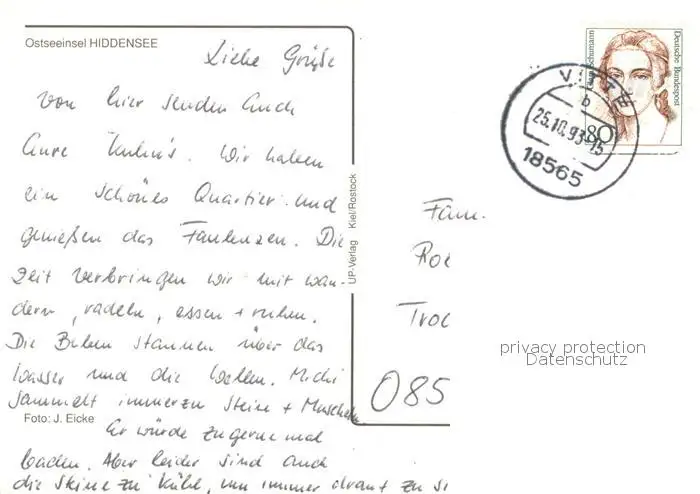 Ostseeinsel HIDDENSEE
Liebe Grüße
von hier senden Euch
Eure Kuhn's. Wir haben
ein schönes Quartier und
genießen das Faulenzen. Die
Zeit verbringen wir mit wan-
dern, radeln, essen + ruhen.
Die Buben staunen über das
Wasser und die Wellen. Michi
sammelt immerzu Steine + Muscheln.
Foto: J. Eicke
Er würde zu gerne mal
baden. Aber leider sind auch
die Steine zu kühl, um immer drauf zu si
UP-Verlag Kiel/Rostock
Fam.
Ro
Troc
085
Schumann
Deutsche Bundespost
80
VITTE
b
25.10.93-15
18565
privacy protection
Datenschutz